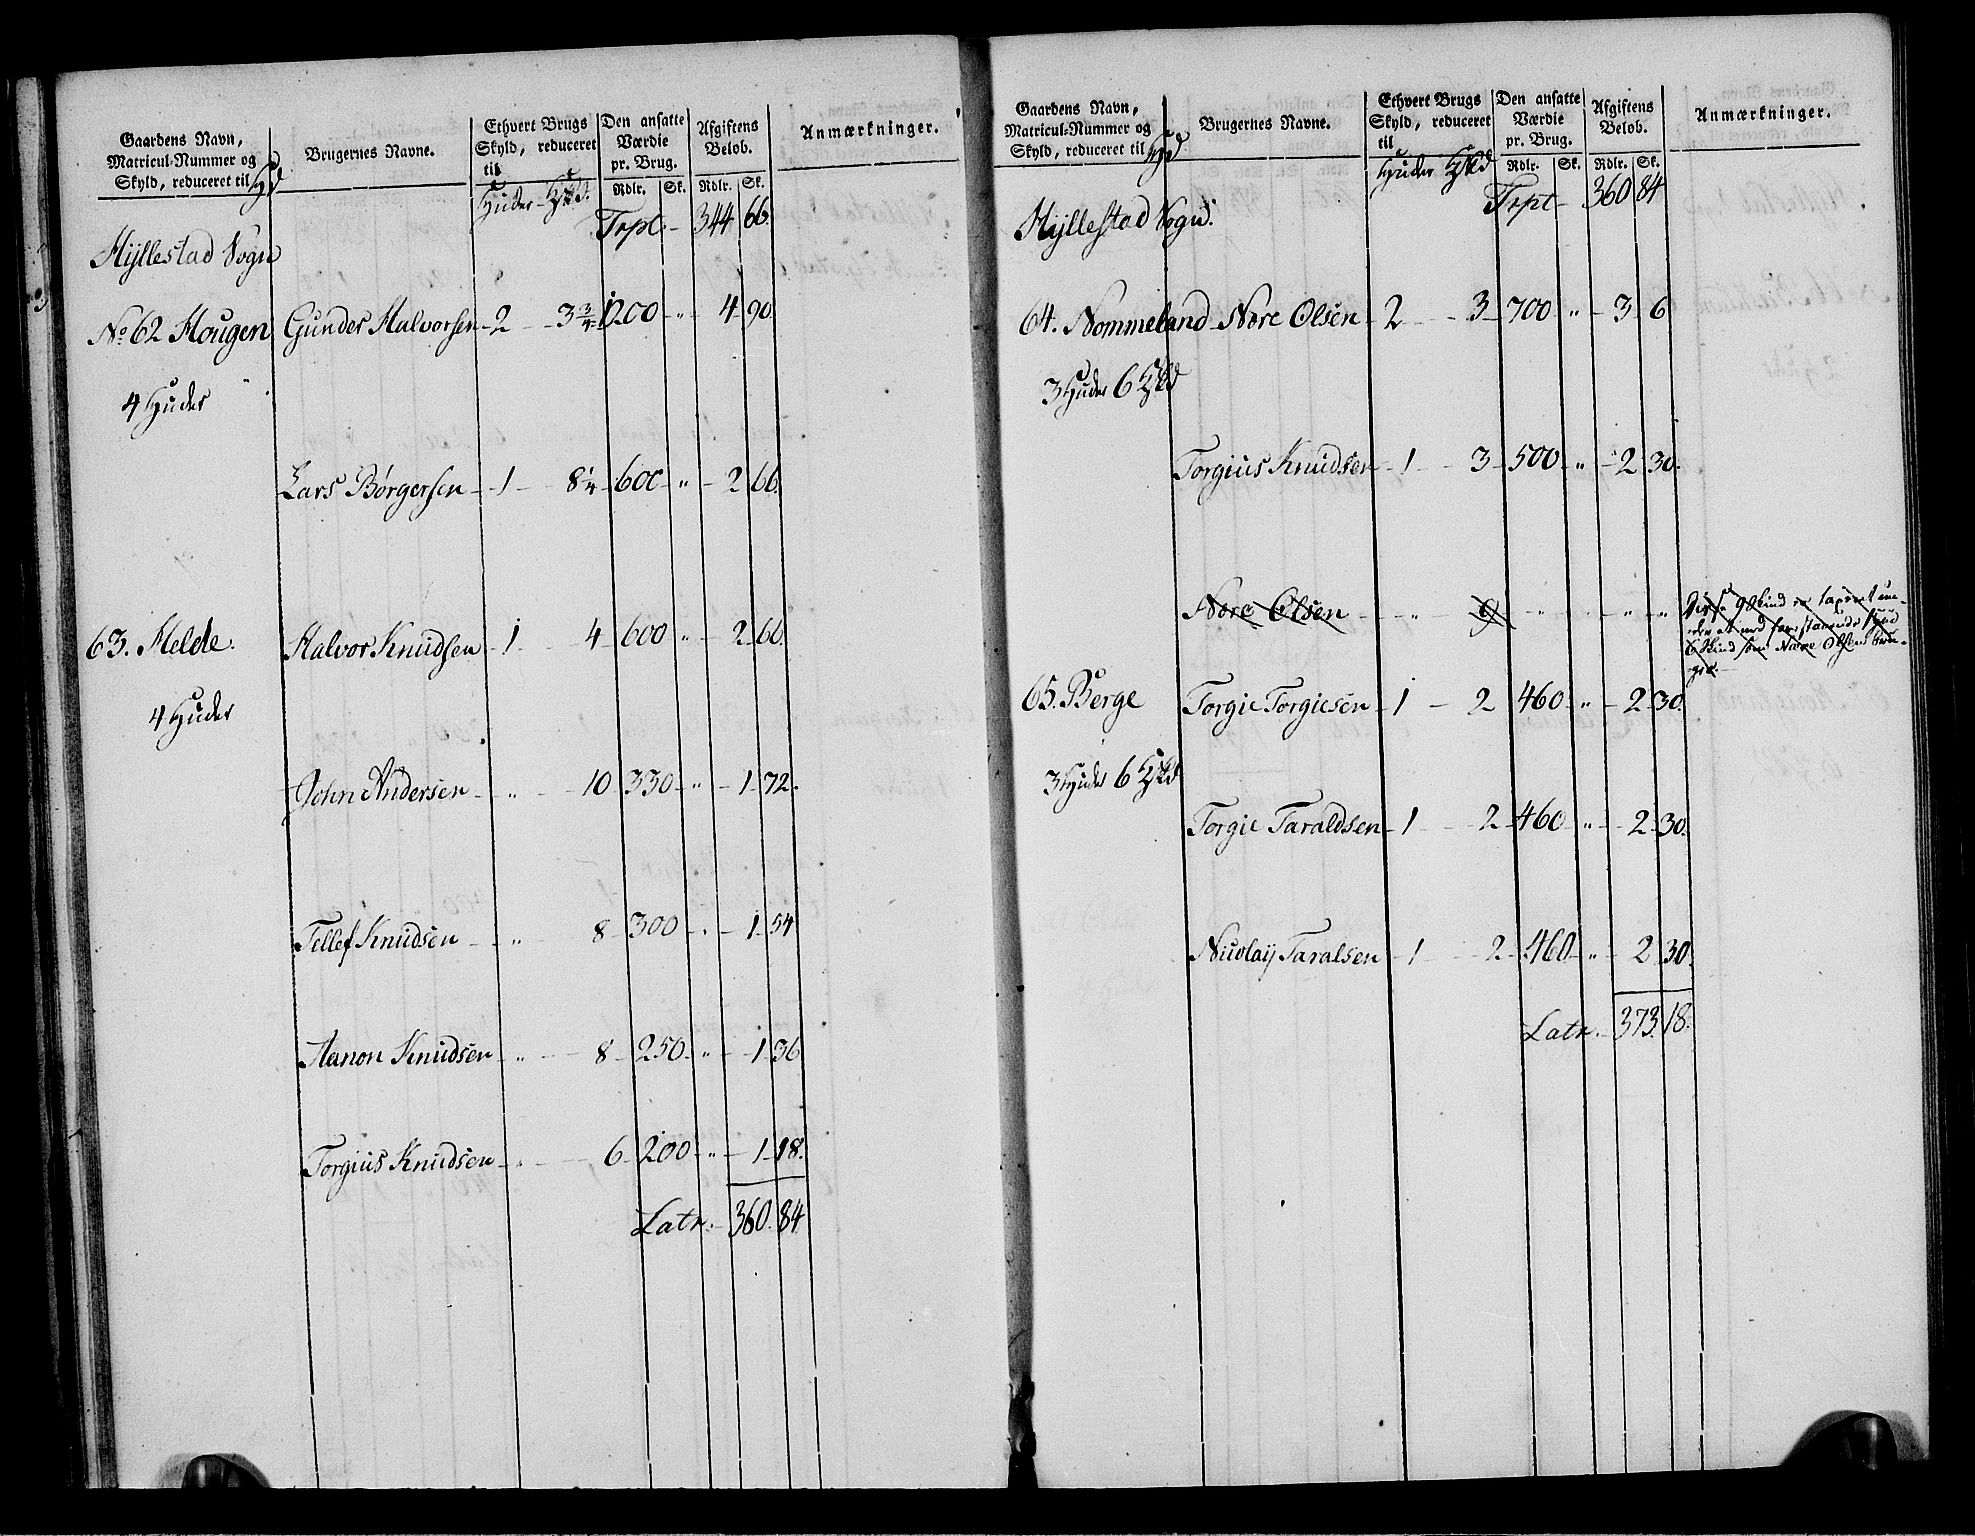 Gaardens Navn, Matricul-Nummer og Skyld, reduceret til Hd
Brugernes Navne.
Ethvert Brugs Skyld, reduceret til
Huder
Den ansatte Værdie pr. Brug.
Rdlr. Sk.
Afgiftens Beløb.
Rdlr. Sk.
Anmærkninger.
Trpt 344 66.
Hyllestad Sogn
No 62 Hougen Gunder Halvorsen 2 3 3/4 1200 " 4 90
4 Huder
Lars Børgersen 1 8 1/4 600 " 2 66.
63. Helde. Halvor Knudsen 1 4 600 " 2 66.
4 Huder
John Andersen " 10 330 " 1 72.
Tellef Knudsen " 8 300 " 1 54
Aanon Knudsen " 8 250 " 1 36
Torgius Knudsen " 6 200 " 1 18.
Latr. 360. 84
Gaardens Navn, Matricul-Nummer og Skyld, reduceret til Hd
Brugernes Navne.
Ethvert Brugs Skyld, reduceret til
Huder
Den ansatte Værdie pr. Brug.
Rdlr. Sk.
Afgiftens Beløb.
Rdlr. Sk.
Anmærkninger.
Trpt 360 84
Hyllestad Sogn.
64. Nommeland Nore Olsen 2 3 700 " 3 6
3 Huder 6
Torgius Knudsen 1 3 500 " 2 30.
Nore Olsen " 9 " " " "
Disse 9 Skind er taxeret un-
der et med forestaaende
6 Skind som Nore Olsen bru-
ger.
65. Berge Torgie Torgiesen 1 2 460 " 2 30.
3 Huder 6
Torgie Taraldsen 1 2 460 " 2 30.
Nicolaij Taralsen 1 2 460 " 2 30.
Latr. 373. 18.